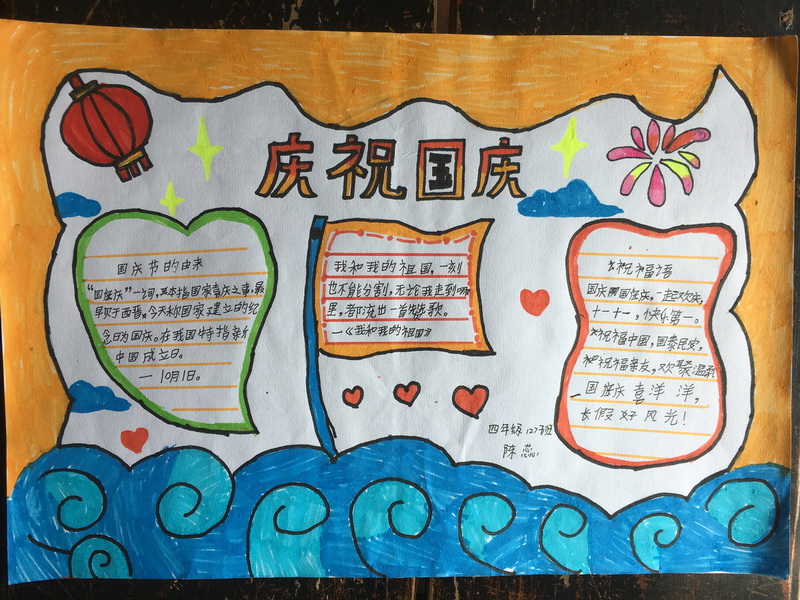 庆祝国庆
国庆节的由来
"国庆"一词,本指国家喜庆之事,最
早见于西晋。今天称国家建立的纪
念日为国庆。在我国特指新
中国成立日。
— 10月1日。
我和我的祖国,一刻
也不能分割,无论我走到哪
里,都流出一首赞歌。
—《我和我的祖国》
祝福语
国庆国庆,一起欢庆,
十一十一,快乐第一。
祝福中国,国泰民安,
祝福亲友,欢聚温融
国庆喜洋洋,
长假好风光!
四年级(2)班
陈蕊